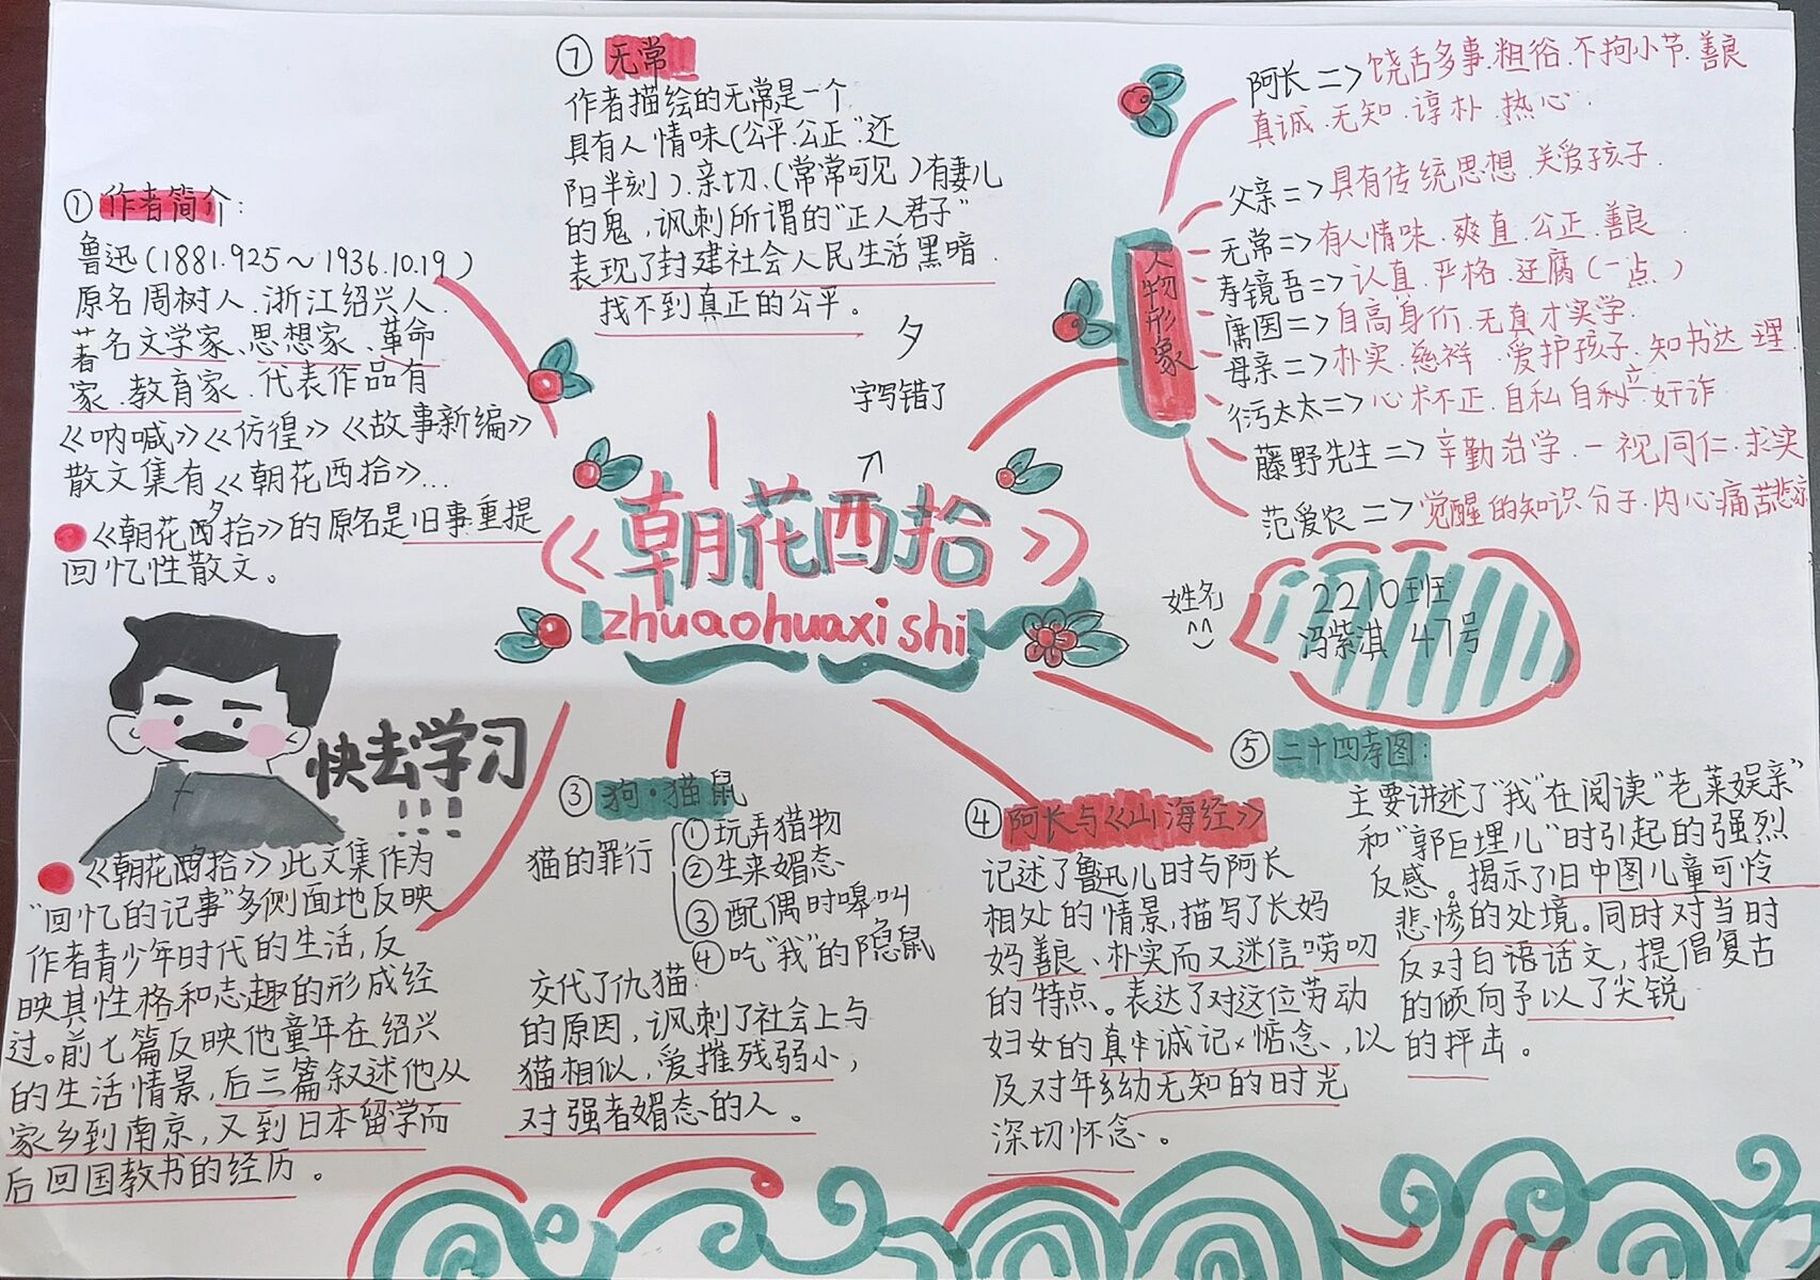 ① 作者简介:
鲁迅(1881.925～1936.10.19)
原名周树人.浙江绍兴人.
著名文学家、思想家、革命
家.教育家.代表作品有
《呐喊》《彷徨》《故事新编》
散文集有《朝花西拾》...
夕
《朝花西拾》的原名是旧事重提
回忆性散文。
快去学习
!!!
《朝花西拾》此文集作为
"回忆的记事"多侧面地反映
作者青少年时代的生活,反
映其性格和志趣的形成经
过。前七篇反映他童年在绍兴
的生活情景,后三篇叙述他从
家乡到南京,又到日本留学而
后回国教书的经历。
⑦ 无常
作者描绘的无常是一个
具有人情味(公平.公正"还
阳半刻).亲切、(常常可见)有妻儿
的鬼,讽刺所谓的"正人君子"
表现了封建社会人民生活黑暗.
找不到真正的公平。
夕
字写错了
《朝花酉拾》
zhuaohuaxishi
人物形象
阿长=>饶舌多事.粗俗.不拘小节.善良
真诚.无知.谆朴.热心.
父亲=>具有传统思想.关爱孩子.
无常=>有人情味.爽直.公正.善良.
寿镜吾=>认真.严格.迂腐(一点.)
庸医=>自高身价.无真才实学.
母亲=>朴实.慈祥.爱护孩子.知书达理.
衍太太=>心术不正.自私自利.奸诈
藤野先生=>辛勤治学.一视同仁.求实
范爱农=>觉醒的知识分子.内心痛苦悲凉
姓名
^^
2210班
冯紫淇 47号
③ 狗·猫鼠
猫的罪行
①玩弄猎物
②生来媚态
③配偶时嗥叫
④吃"我"的隐鼠
交代了仇猫
的原因,讽刺了社会上与
猫相似,爱摧残弱小,
对强者媚态的人。
④ 阿长与《山海经》
记述了鲁迅儿时与阿长
相处的情景,描写了长妈
妈善良、朴实而又迷信唠叨
的特点。表达了对这位劳动
妇女的真诚记惦念、以
及对年幼无知的时光
深切怀念。
⑤ 二十四孝图:
主要讲述了"我"在阅读"老莱娱亲"
和"郭巨埋儿"时引起的强烈
反感。揭示了旧中图儿童可怜
悲惨的处境。同时对当时
反对白语话文,提倡复古
的倾向予以了尖锐
的抨击。